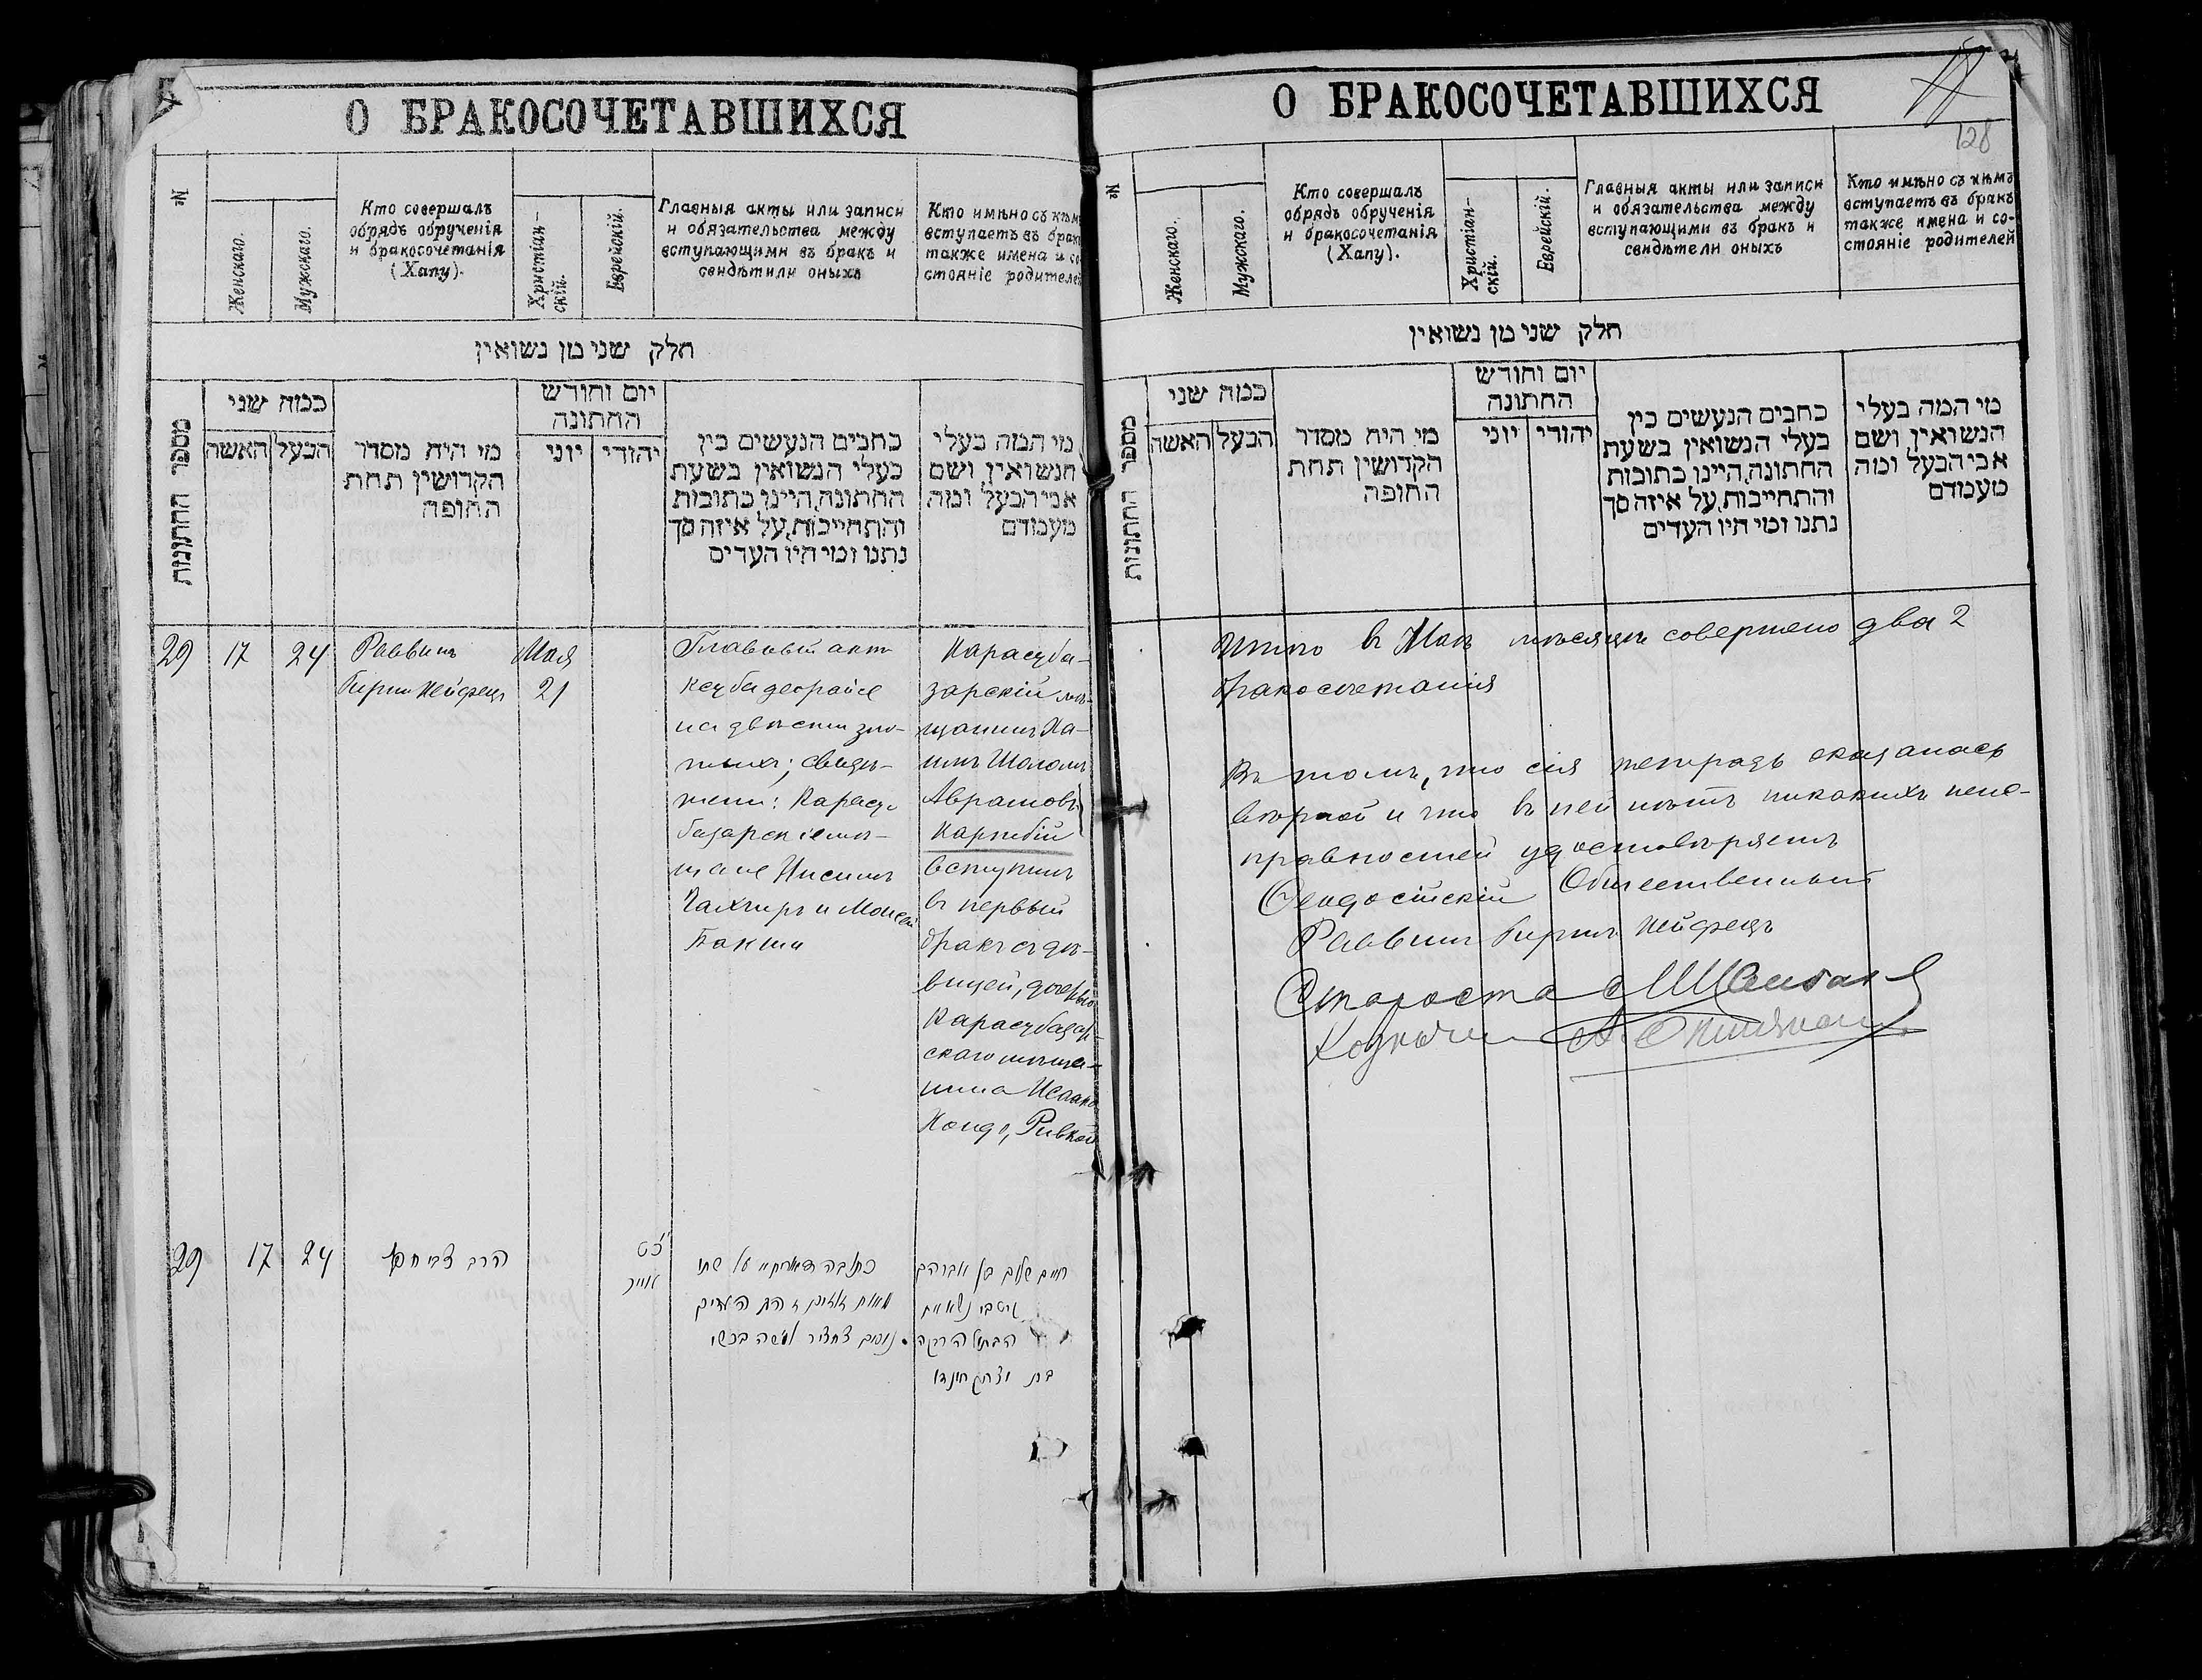 О БРАКОСОЧЕТАВШИХСЯ
№
Женскаго.
Мужскаго.
Кто совершалъ
обрядъ обрученія
и бракосочетанія
(Хапу).
Христіан-
скій.
Еврейскій.
Главныя акты или записи
и обязательства между
вступающими въ бракъ и
свидѣтили оныхъ
Кто имѣно съ кѣмъ
вступаетъ въ бракъ
также имена и со-
стояніе родителей
חלק שני מן נשואין
מספר החתונות
כמה שני
האשה
הבעל
מי היה מסדר
הקדושין תחת
החופה
יום וחודש
החתונה
יוני
יהודי
כתבים הנעשים בין
בעלי הנשואין בשעת
החתונה, היינו כתובות
והתחייבות, על איזה סך
נתנו ומי היו העדים
מי המה בעלי
הנשואין, ושם
אבי הבעל ומה
מעמדם
29 17 24
Раввинъ
Гиршъ Хейфецъ
Мая
21
Главный актъ
кеуба деорайсе
на двѣсти зло-
тыхъ; свидѣ-
тели: Карасу-
базарскіе мѣ-
щане Нисимъ
и Моисей
Бакши
Карасуба-
зарскій мѣ-
щанинъ Ха-
имъ Шоломъ
Аврамовъ
вступилъ
въ первый
бракъ съ дѣ-
вицей, дочерью
Карасубазар-
скаго мѣща-
нина Исаака
Хондо, Ривкой
29 17 24
הרב צבי חפץ
כט
אייר
כתובה דאורייתא על שתי
מאות זהובים
נסים משה בכשי
חיים שלום בן אברהם
נשא את
הבתולה רבקה
בת יצחק חונדו
О БРАКОСОЧЕТАВШИХСЯ
128
№
Женскаго.
Мужскаго.
Кто совершалъ
обрядъ обрученія
и бракосочетанія
(Хапу).
Христіан-
скій.
Еврейскій.
Главныя акты или записи
и обязательства между
вступающими въ бракъ и
свидѣтели оныхъ
Кто имѣно съ кѣмъ
вступаетъ въ бракъ
также имена и со-
стояніе родителей
חלק שני מן נשואין
מספר החתונות
כמה שני
האשה
הבעל
מי היה מסדר
הקדושין תחת
החופה
יום וחודש
החתונה
יוני
יהודי
כתבים הנעשים בין
בעלי הנשואין בשעת
החתונה, היינו כתובות
והתחייבות, על איזה סך
נתנו ומי היו העדים
מי המה בעלי
הנשואין, ושם
אבי הבעל ומה
מעמדם
Итого въ Маѣ мѣсяцѣ совершено два 2
бракосочетанія
Въ томъ, что сія тетрадь оказалась
вѣрной и что въ ней нѣтъ никакихъ неис-
правностей удостовѣряетъ
Ѳеодосійскій Общественный
Раввинъ Гиршъ Хейфецъ
Староста
Казначей